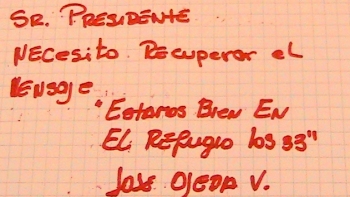 SR. PRESIDENTE
NECESITO RECUPERAR EL
MENSAJE
"ESTAMOS BIEN EN
EL REFUGIO los 33"
JOSE OJEDA V.